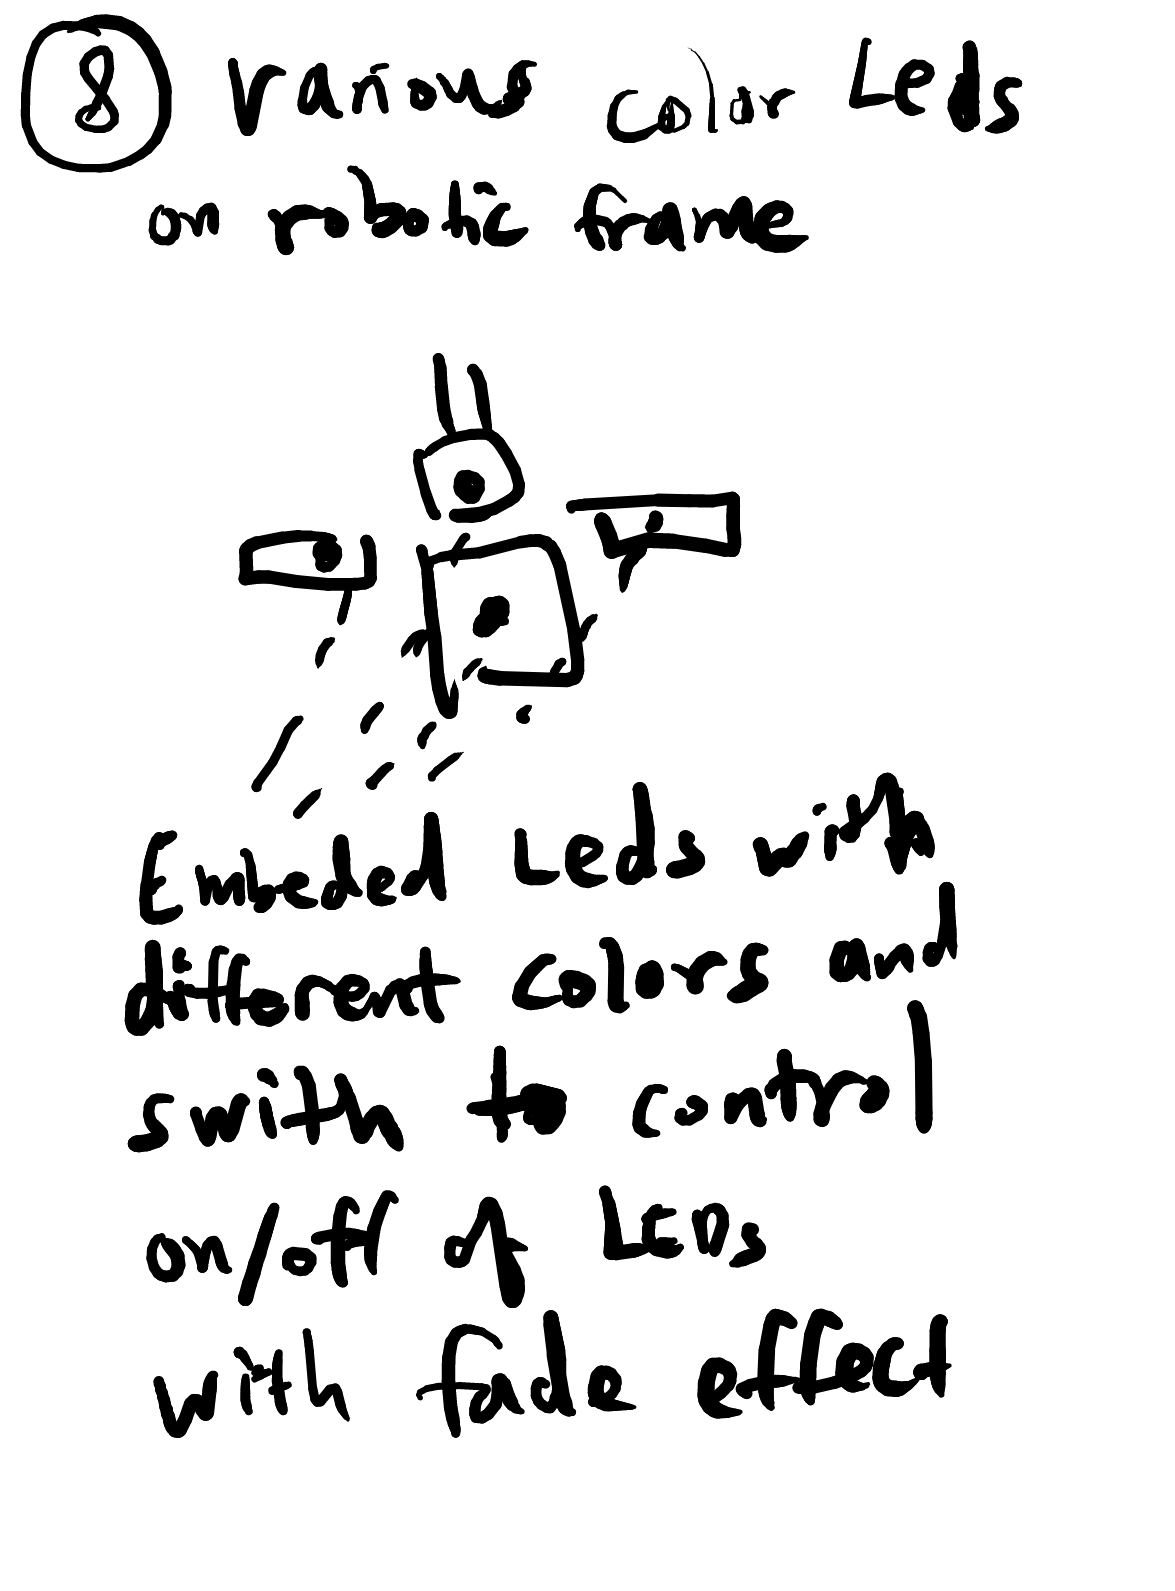 8 various color Leds
on robotic frame
Embeded Leds with
different colors and
swith to control
on/off of LEDs
with fade effect